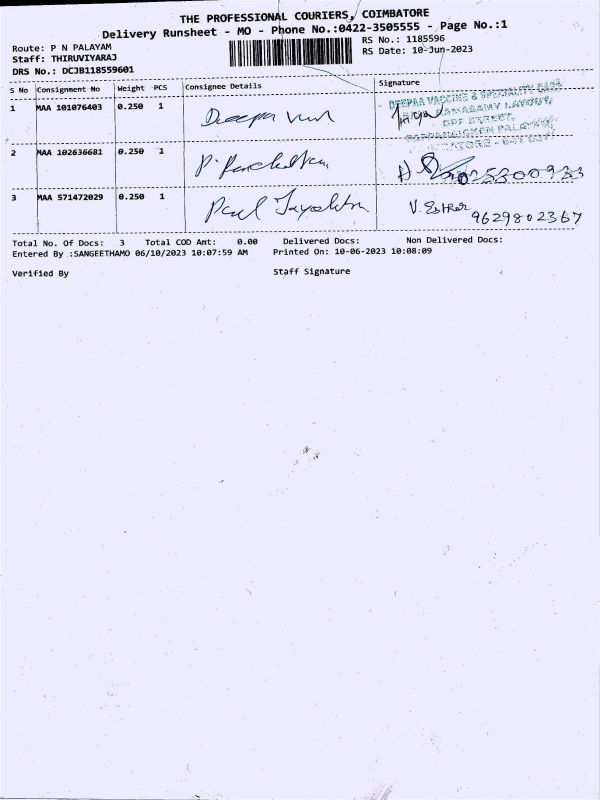 THE PROFESSIONAL COURIERS, COIMBATORE
Delivery Runsheet - MO - Phone No.:0422-3505555 - Page No.:1
Route: P N PALAYAM
RS No.: 1185596
Staff: THIRUVIYARAJ
RS Date: 10-Jun-2023
DRS No.: DCJB118559601
S No Consignment No Weight PCS Consignee Details Signature
1 MAA 101076403 0.250 1 Deepa
DEEPAA VACCINE & SPECIALITY CARE
RAMASAMY LAYOUT,
DPF STREET,
PAPPANAICKEN PALAYAM,
2 MAA 102636681 0.250 1 P.
3 MAA 571472029 0.250 1 Paul
V. Esther 9629802367
Total No. Of Docs: 3 Total COD Amt: 0.00 Delivered Docs: Non Delivered Docs:
Entered By :SANGEETHAMO 06/10/2023 10:07:59 AM Printed On: 10-06-2023 10:08:09
Verified By Staff Signature